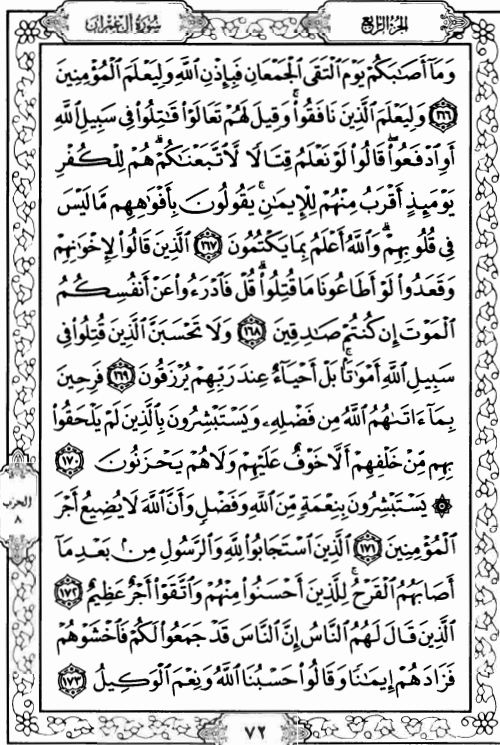 سُورَةُ آلِ عِمْرَانَ الجُزْءُ الرَّابِعُ
وَمَآ أَصَٰبَكُمْ يَوْمَ ٱلْتَقَى ٱلْجَمْعَانِ فَبِإِذْنِ ٱللَّهِ وَلِيَعْلَمَ ٱلْمُؤْمِنِينَ
١٦٦ وَلِيَعْلَمَ ٱلَّذِينَ نَافَقُوا۟ۚ وَقِيلَ لَهُمْ تَعَالَوْا۟ قَٰتِلُوا۟ فِى سَبِيلِ ٱللَّهِ
أَوِ ٱدْفَعُوا۟ۖ قَالُوا۟ لَوْ نَعْلَمُ قِتَالًا لَّٱتَّبَعْنَٰكُمْۗ هُمْ لِلْكُفْرِ
يَوْمَئِذٍ أَقْرَبُ مِنْهُمْ لِلْإِيمَٰنِۚ يَقُولُونَ بِأَفْوَٰهِهِم مَّا لَيْسَ
فِى قُلُوبِهِمْۗ وَٱللَّهُ أَعْلَمُ بِمَا يَكْتُمُونَ ١٦٧ ٱلَّذِينَ قَالُوا۟ لِإِخْوَٰنِهِمْ
وَقَعَدُوا۟ لَوْ أَطَاعُونَا مَا قُتِلُوا۟ۗ قُلْ فَٱدْرَءُوا۟ عَنْ أَنفُسِكُمُ
ٱلْمَوْتَ إِن كُنتُمْ صَٰدِقِينَ ١٦٨ وَلَا تَحْسَبَنَّ ٱلَّذِينَ قُتِلُوا۟ فِى
سَبِيلِ ٱللَّهِ أَمْوَٰتًۢاۚ بَلْ أَحْيَآءٌ عِندَ رَبِّهِمْ يُرْزَقُونَ ١٦٩ فَرِحِينَ
بِمَآ ءَاتَىٰهُمُ ٱللَّهُ مِن فَضْلِهِۦ وَيَسْتَبْشِرُونَ بِٱلَّذِينَ لَمْ يَلْحَقُوا۟
بِهِم مِّنْ خَلْفِهِمْ أَلَّا خَوْفٌ عَلَيْهِمْ وَلَا هُمْ يَحْزَنُونَ ١٧٠
۞ يَسْتَبْشِرُونَ بِنِعْمَةٍ مِّنَ ٱللَّهِ وَفَضْلٍ وَأَنَّ ٱللَّهَ لَا يُضِيعُ أَجْرَ
ٱلْمُؤْمِنِينَ ١٧١ ٱلَّذِينَ ٱسْتَجَابُوا۟ لِلَّهِ وَٱلرَّسُولِ مِنۢ بَعْدِ مَآ
أَصَابَهُمُ ٱلْقَرْحُۚ لِلَّذِينَ أَحْسَنُوا۟ مِنْهُمْ وَٱتَّقَوْا۟ أَجْرٌ عَظِيمٌ ١٧٢
ٱلَّذِينَ قَالَ لَهُمُ ٱلنَّاسُ إِنَّ ٱلنَّاسَ قَدْ جَمَعُوا۟ لَكُمْ فَٱخْشَوْهُمْ
فَزَادَهُمْ إِيمَٰنًا وَقَالُوا۟ حَسْبُنَا ٱللَّهُ وَنِعْمَ ٱلْوَكِيلُ ١٧٣
الحزب
٨
٧٢